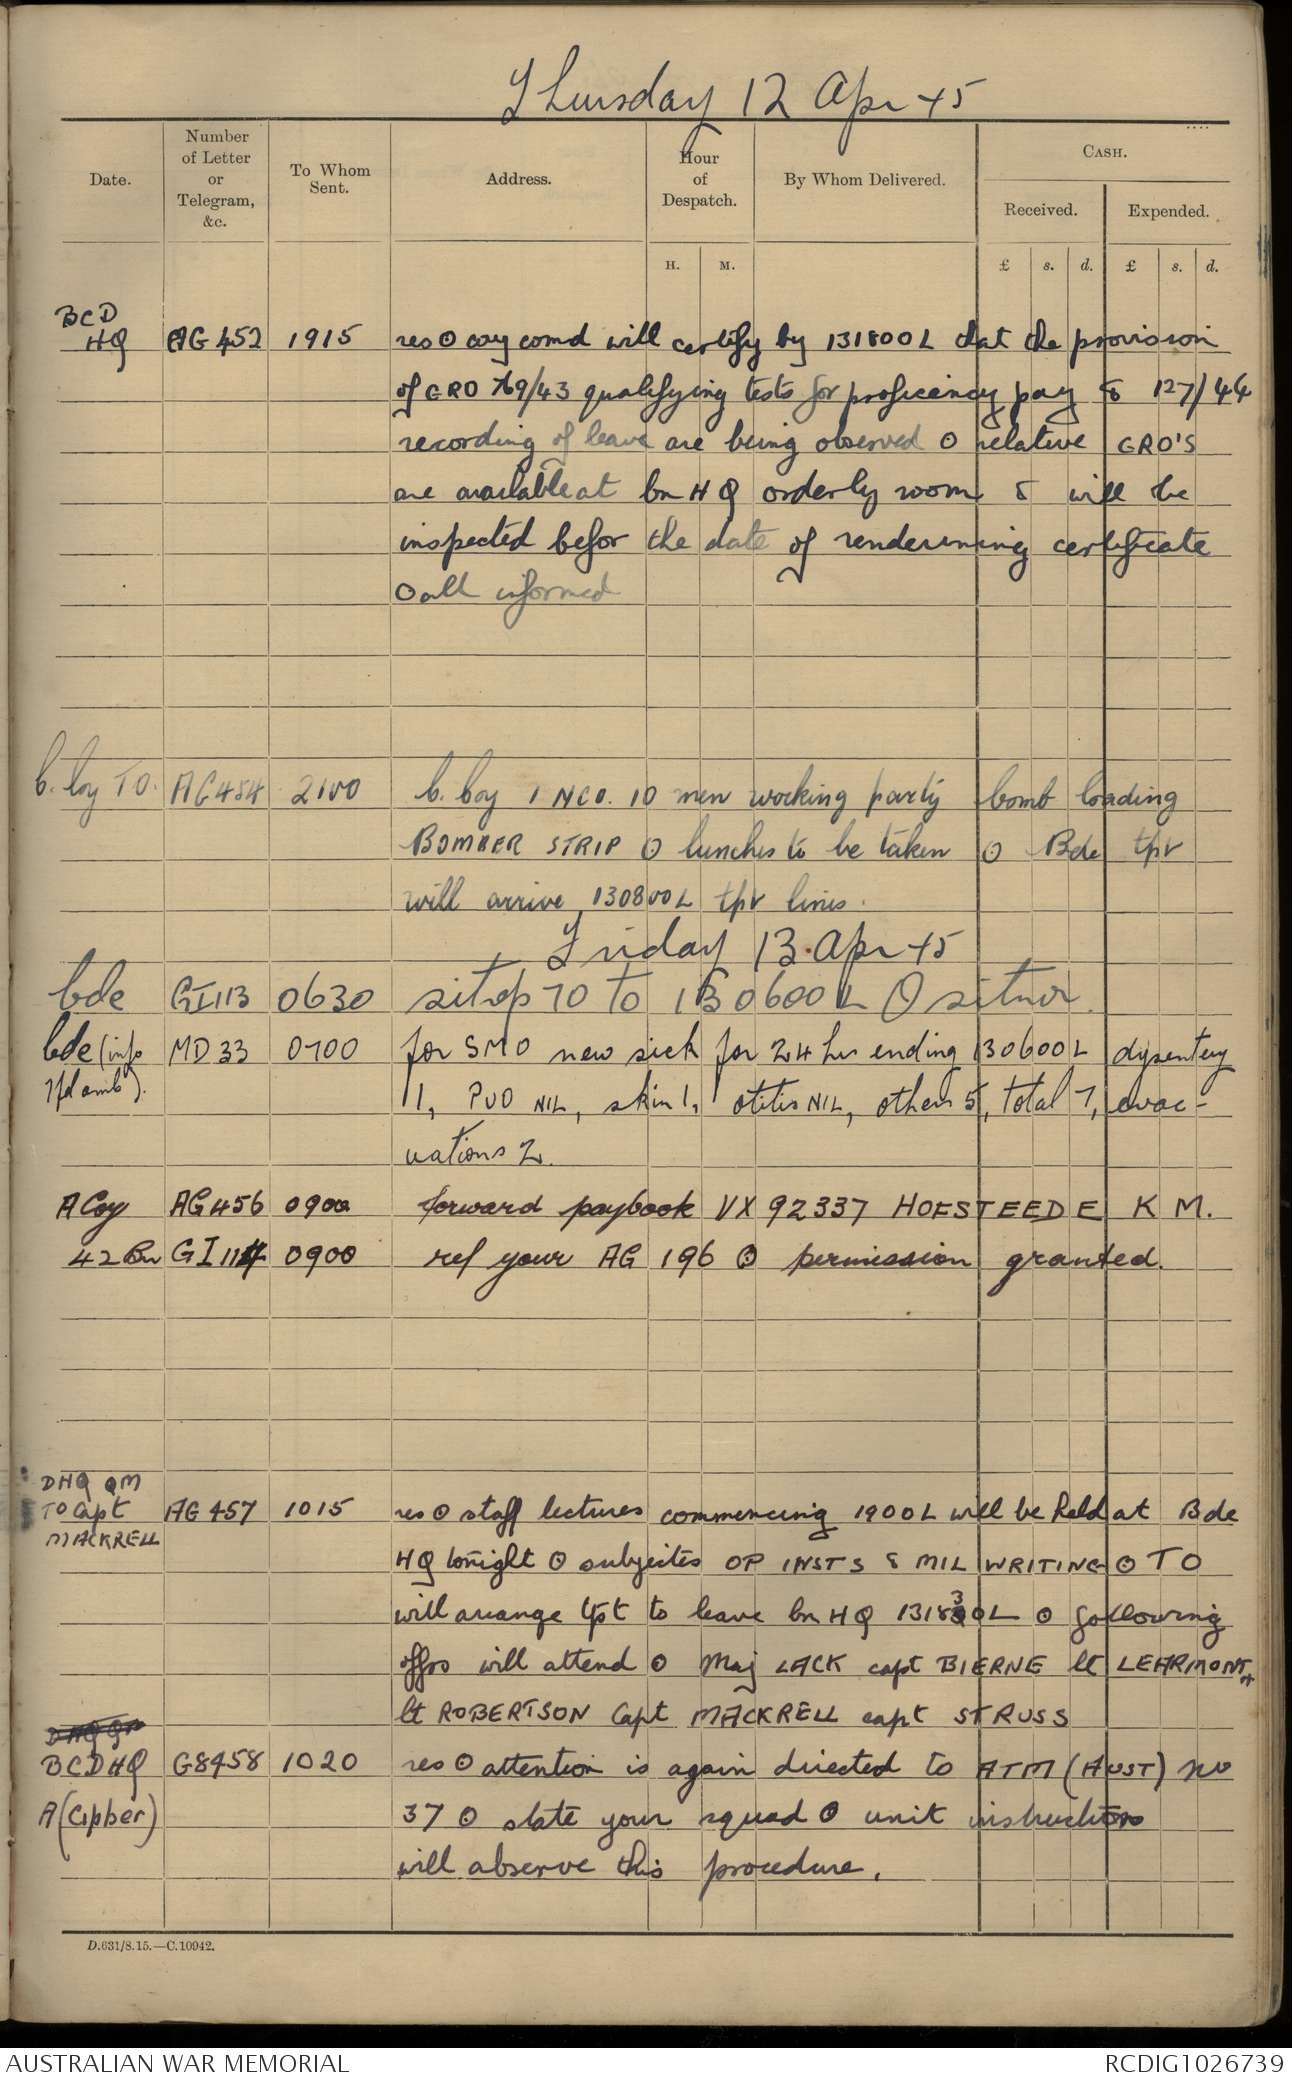 Thursday 12 Apr 45
Date.
Number of Letter or Telegram, &c.
To Whom Sent.
Address.
Hour of Despatch.
By Whom Delivered.
CASH.
Received.
Expended.
H. M. £ s. d. £ s. d.
BCD
HQ AG 452 1915 res ⊙ coy comd will certify by 131800L that the provision
of GRO 769/43 qualifying tests for proficiency pay & 127/44
recording of leave are being observed ⊙ relative GRO'S
are available at bn HQ orderly room & will be
inspected befor the date of renderining certificate
⊙ all informed
b. coy TO. AG 454 2100 b. Coy 1 NCO. 10 men working party bomb loading
BOMBER STRIP ⊙ lunches to be taken ⊙ Bde tpt
will arrive 130800L tpt lines.
Friday 13 Apr 45
bde GI113 0630 sitrep 70 to 130600L ⊙ sitnor
bde (info MD 33 0700 for SMO new sick for 24 hrs ending 130600L dysentery
7 fd amb). 11, PUO NIL, skin 1, otitis NIL, others 5, total 7, evac-
uations 2.
A Coy AG 456 0900 forward paybook VX 92337 HOFSTEEDE K M.
42 Bn GI 114 0900 ref your AG 196 ⊙ permission granted.
DHQ QM
TO Capt AG 457 1015 res ⊙ staff lectures commencing 1900L will be held at Bde
MACKRELL
HQ tonight ⊙ subjects OP INSTS & MIL WRITING ⊙ TO
will arrange tpt to leave bn HQ 131830L ⊙ following
offrs will attend ⊙ Maj LACK capt BIERNE lt LEARMONT
lt ROBERTSON Capt MACKRELL capt STRUSS
DHQ QM
BCDHQ G8458 1020 res ⊙ attention is again directed to ATM (AUST) no
A (Cipher) 37 ⊙ state your squad ⊙ unit instructors
will observe this procedure.
D.631/8.15.—C.10942.
AUSTRALIAN WAR MEMORIAL
RCDIG1026739